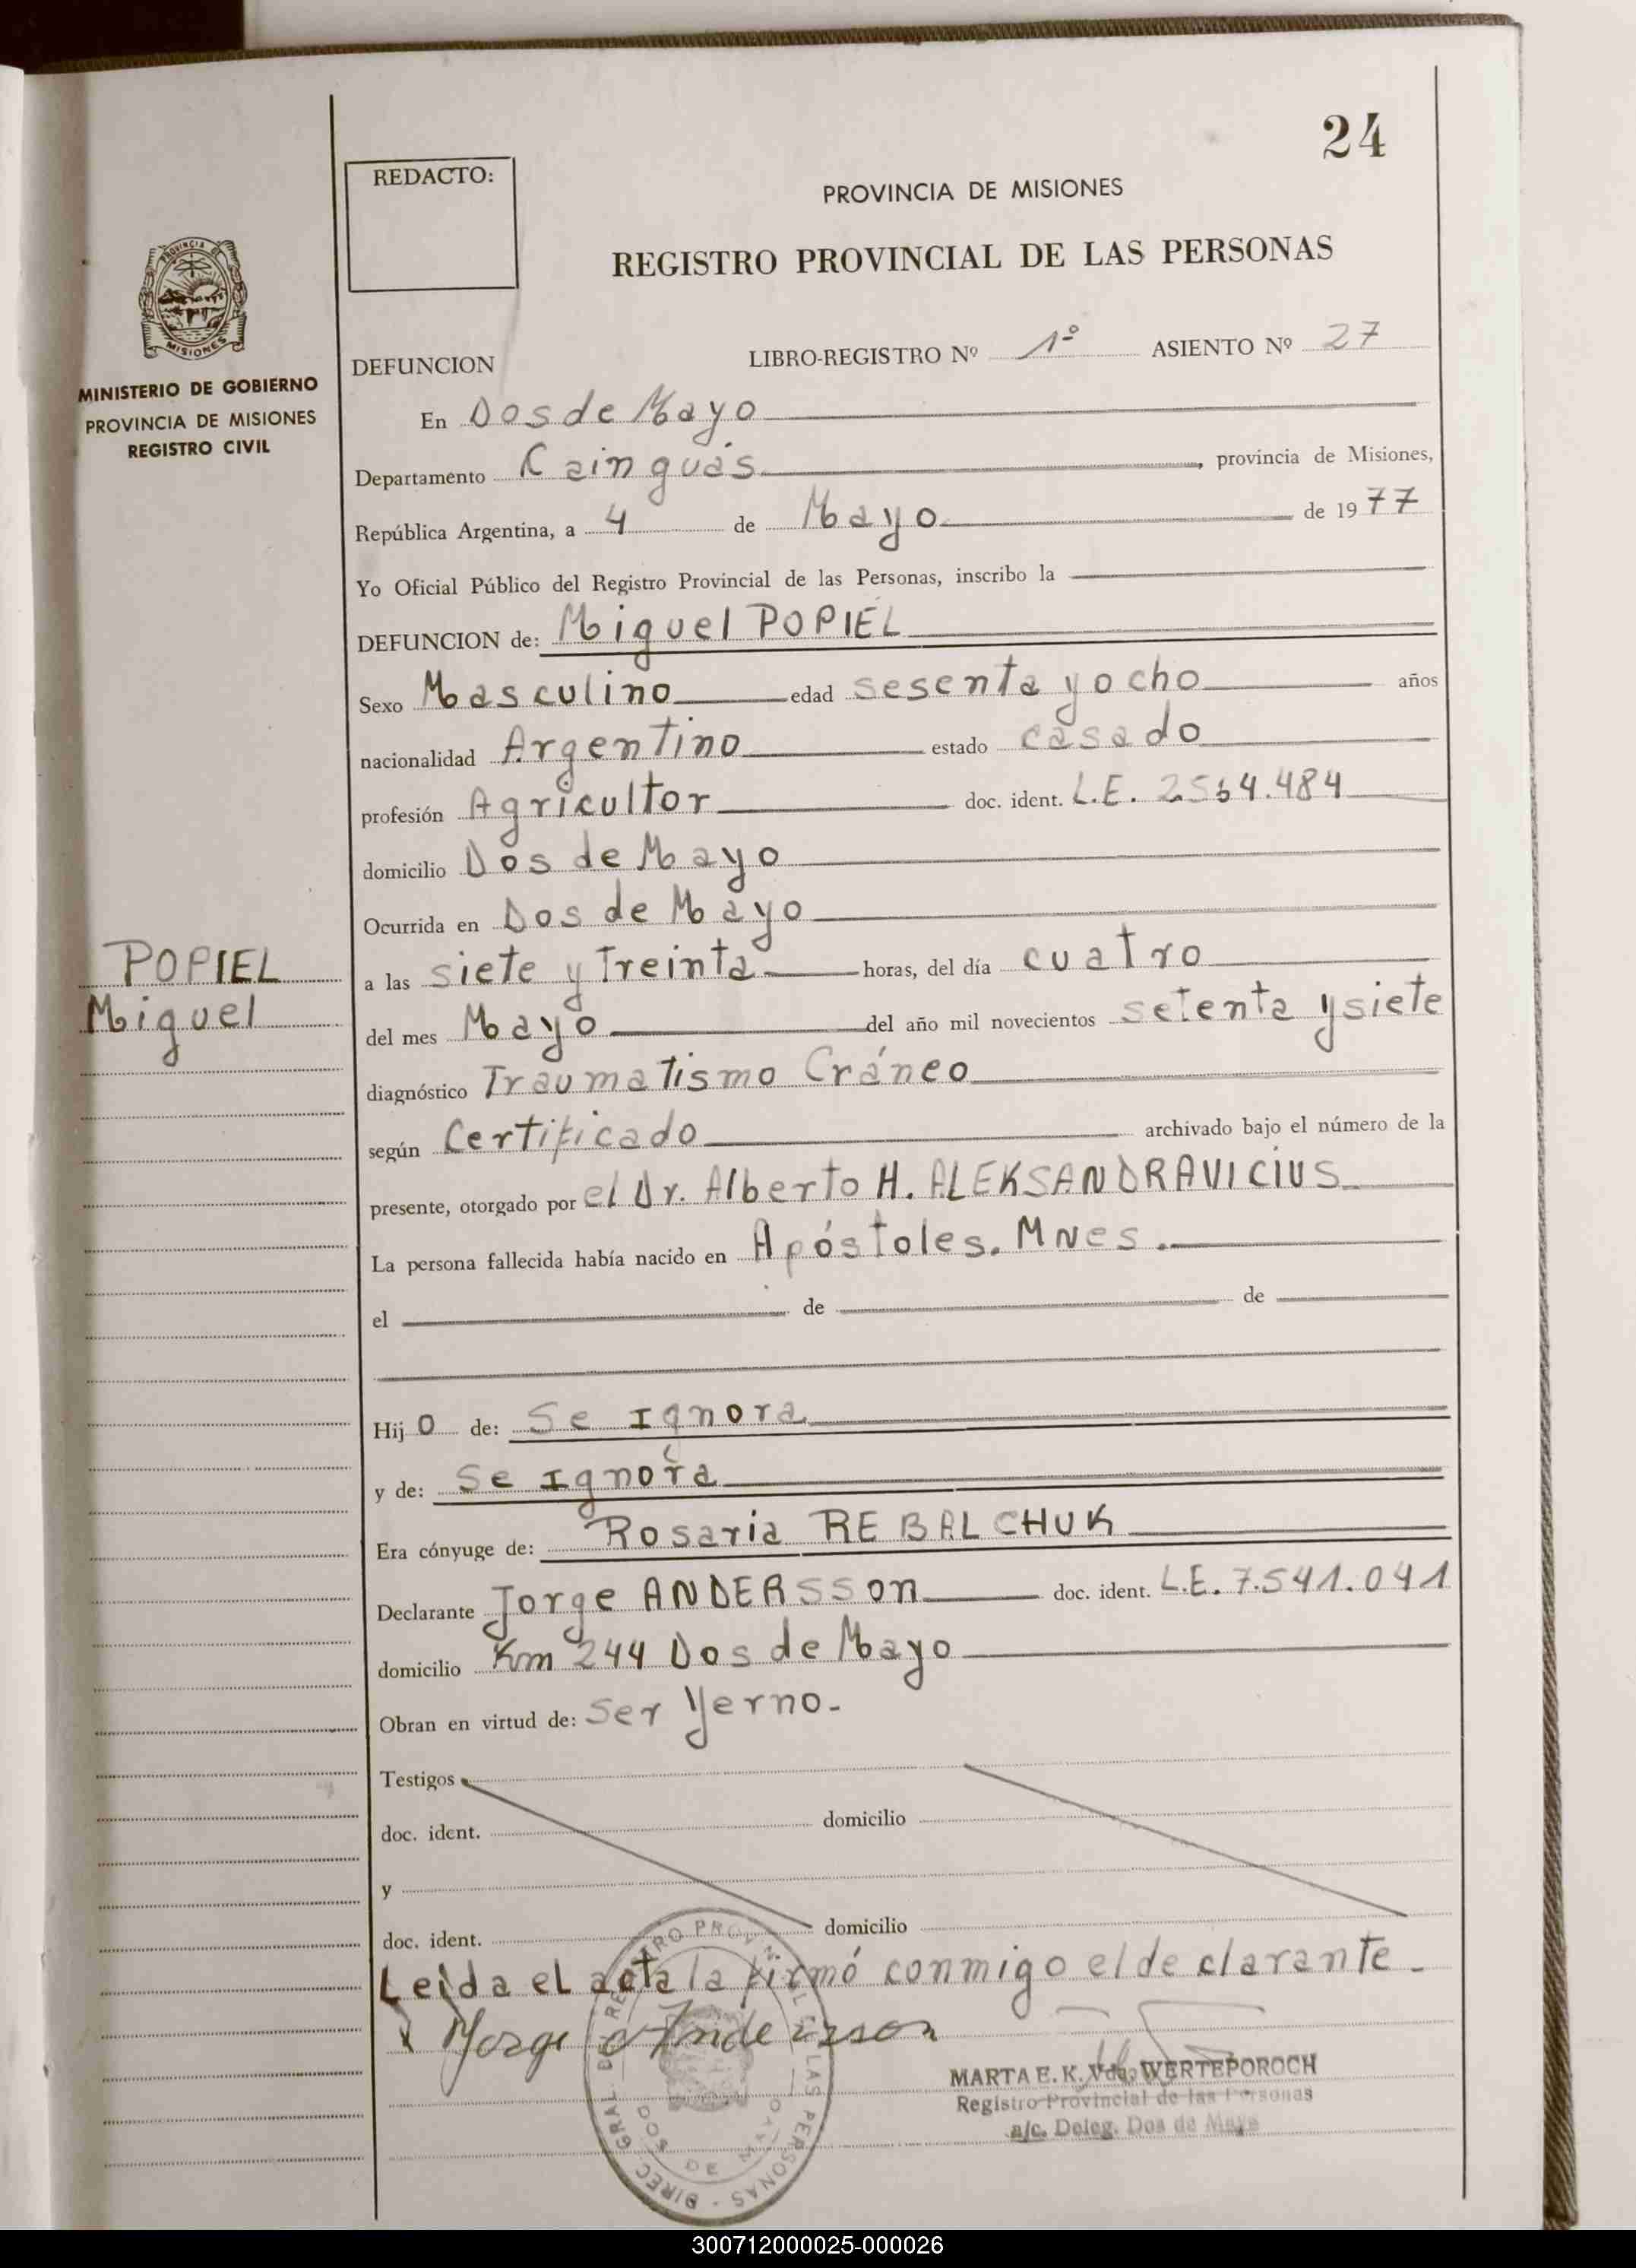 24
REDACTO:
PROVINCIA DE MISIONES
REGISTRO PROVINCIAL DE LAS PERSONAS
PROVINCIA
MISIONES
MINISTERIO DE GOBIERNO
PROVINCIA DE MISIONES
REGISTRO CIVIL
DEFUNCION LIBRO-REGISTRO Nº 1º ASIENTO Nº 27
En Dos de Mayo
Departamento Cainguás, provincia de Misiones,
República Argentina, a 4 de Mayo de 1977
Yo Oficial Público del Registro Provincial de las Personas, inscribo la
DEFUNCION de: Miguel POPIEL
Sexo Masculino edad sesenta y ocho años
nacionalidad Argentino estado casado
profesión Agricultor doc. ident. L.E. 2564.484
domicilio Dos de Mayo
Ocurrida en Dos de Mayo
POPIEL
Miguel
a las siete y Treinta horas, del día cuatro
del mes Mayo del año mil novecientos setenta y siete
diagnóstico Traumatismo Cráneo
según Certificado archivado bajo el número de la
presente, otorgado por el Dr. Alberto H. ALEKSANDRAVICIUS
La persona fallecida había nacido en Apóstoles. MNes.
el de de
Hijo de: Se Ignora
y de: Se Ignora
Era cónyuge de: Rosaria REBALCHUK
Declarante Jorge ANDERSSON doc. ident. L.E. 7.541.041
domicilio Km 244 Dos de Mayo
Obran en virtud de: Ser Yerno.
Testigos
doc. ident. domicilio
y
doc. ident. domicilio
Leida el acta la firmó conmigo el declarante.
Jorge Anderson
MARTA E. K. Vda. WERTEPOROCH
Registro Provincial de las Personas
a/c. Deleg. Dos de Mayo
DIREC GRAL DE REGISTRO PROVINCIAL LAS PERSONAS
DOS DE MAYO
300712000025-000026